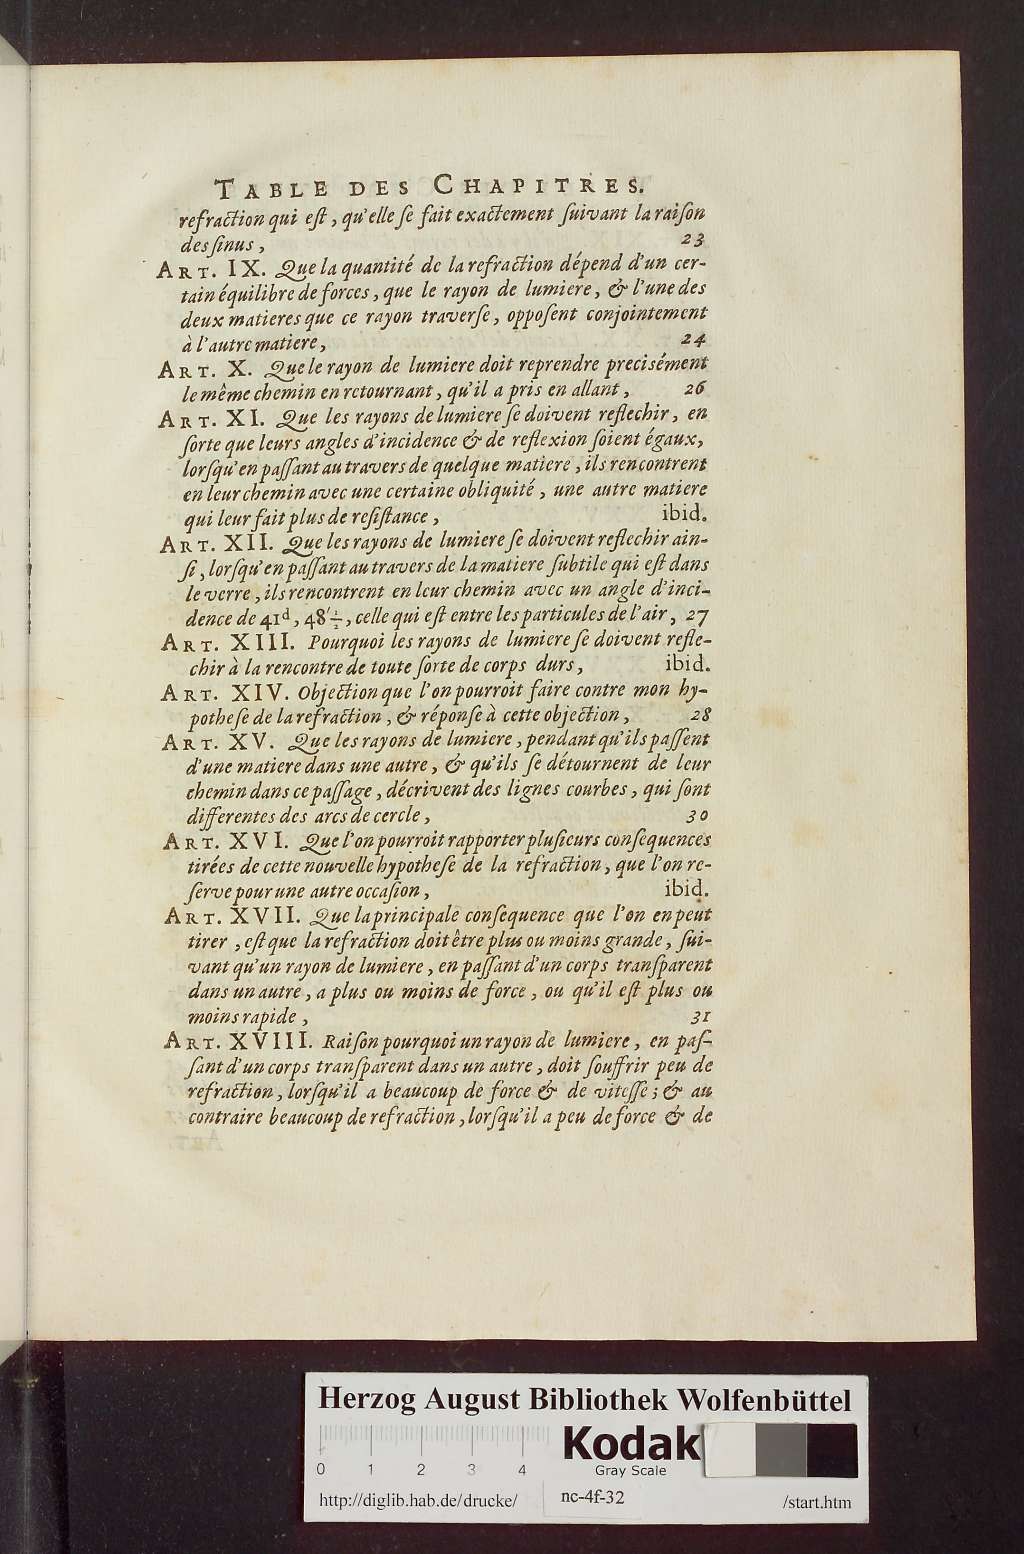 TABLE DES CHAPITRES.
refraction qui eſt, qu'elle ſe fait exactement ſuivant la raiſon
des ſinus, 23
ART. IX. Que la quantité de la refraction dépend d'un cer-
tain équilibre de forces, que le rayon de lumiere, & l'une des
deux matieres que ce rayon traverſe, oppoſent conjointement
à l'autre matiere, 24
ART. X. Que le rayon de lumiere doit reprendre precisément
le même chemin en retournant, qu'il a pris en allant, 26
ART. XI. Que les rayons de lumiere ſe doivent reflechir, en
ſorte que leurs angles d'incidence & de reflexion ſoient égaux,
lorſqu'en paſſant au travers de quelque matiere, ils rencontrent
en leur chemin avec une certaine obliquité, une autre matiere
qui leur fait plus de reſiſtance, ibid.
ART. XII. Que les rayons de lumiere ſe doivent reflechir ain-
ſi, lorſqu'en paſſant au travers de la matiere ſubtile qui eſt dans
le verre, ils rencontrent en leur chemin avec un angle d'inci-
dence de 41ᵈ, 48′½, celle qui eſt entre les particules de l'air, 27
ART. XIII. Pourquoi les rayons de lumiere ſe doivent refle-
chir à la rencontre de toute ſorte de corps durs, ibid.
ART. XIV. Objection que l'on pourroit faire contre mon hy-
potheſe de la refraction, & réponſe à cette objection, 28
ART. XV. Que les rayons de lumiere, pendant qu'ils paſſent
d'une matiere dans une autre, & qu'ils ſe détournent de leur
chemin dans ce paſſage, décrivent des lignes courbes, qui ſont
differentes des arcs de cercle, 30
ART. XVI. Que l'on pourroit rapporter pluſieurs conſequences
tirées de cette nouvelle hypotheſe de la refraction, que l'on re-
ſerve pour une autre occaſion, ibid.
ART. XVII. Que la principale conſequence que l'on en peut
tirer, eſt que la refraction doit être plus ou moins grande, ſui-
vant qu'un rayon de lumiere, en paſſant d'un corps tranſparent
dans un autre, a plus ou moins de force, ou qu'il eſt plus ou
moins rapide, 31
ART. XVIII. Raiſon pourquoi un rayon de lumiere, en paſ-
ſant d'un corps tranſparent dans un autre, doit ſouffrir peu de
refraction, lorſqu'il a beaucoup de force & de viteſſe; & au
contraire beaucoup de refraction, lorſqu'il a peu de force & de
Herzog August Bibliothek Wolfenbüttel
Kodak
Gray Scale
0 1 2 3 4
http://diglib.hab.de/drucke/ nc-4f-32 /start.htm